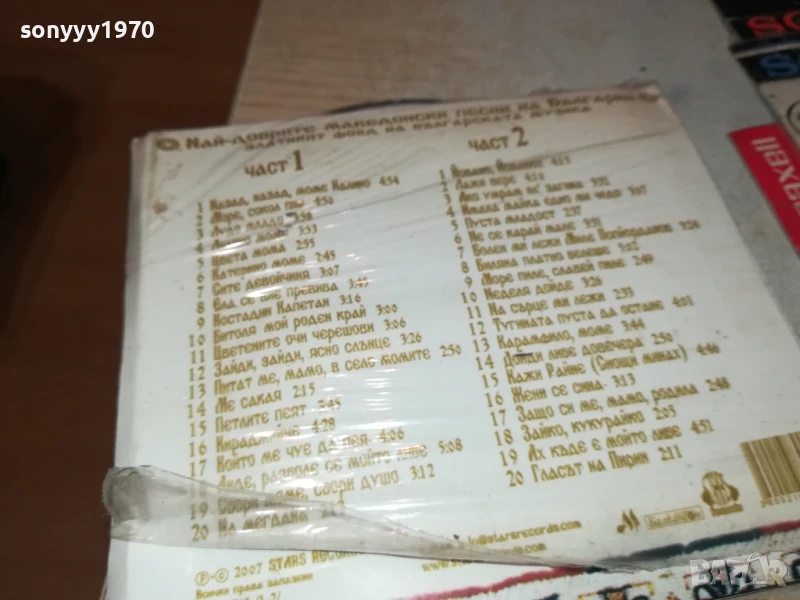 sonyyy1970
Най-добрите македонски песни на България
Златният фонд на българската музика
Част 1
1 Назад, назад, моме Калино 4:54
2 Море, сокол пие 4:50
3 Лудо младо 3:58
4 моме 3:53
5 Цвета мома 2:55
6 Катерино моме 2:45
7 Сите девойчиня 3:07
8 Ела се вие превива 3:45
9 Костадин Капетан 3:16
10 Битоля мой роден край 3:00
11 Цветените очи черешови 3:06
12 Зайди, зайди, ясно слънце 3:26
13 Питат ме, мамо, в село момите 2:50
14 Ме сакая 2:15
15 Петлите пеят 2:45
16 Кираджийче 4:28
17 Който ме чуе да пея 4:06
18 Лиле, разболе се мойто либе 5:08
19 моме, сбори душо 3:12
20 На мегдана
Част 2
1 Йовано, Йованке 4:15
2 Лажи вере 4:10
3 Ако умрам ил' загина 3:32
4 Имала майка едно ми чедо 3:07
5 Пуста младост 2:37
6 Не се карай мале 3:31
7 Болен ми лежи Миле Попйорданов 3:26
8 Биляна платно белеше 5:22
9 Море пиле, славей пиле 2:49
10 Неделя дойде 3:26
11 На сърце ми лежи
12 Тугината пуста да остане 4:01
13 Карамфило, моме 3:44
14 Дойди либе довечера 2:50
15 Кажи Райне (Снощи минах) 4:46
16 Жени се сина 3:13
17 Защо си ме, мамо, родила 2:48
18 Зайко, кукурайко 2:05
19 Ах къде е мойто либе 4:51
20 Гласът на Пирин 2:11
℗-© 2007 STARS RECORDS
Всички права запазени
info@starsrecords.com
www.starsrecords.com
maxell
BAZAR